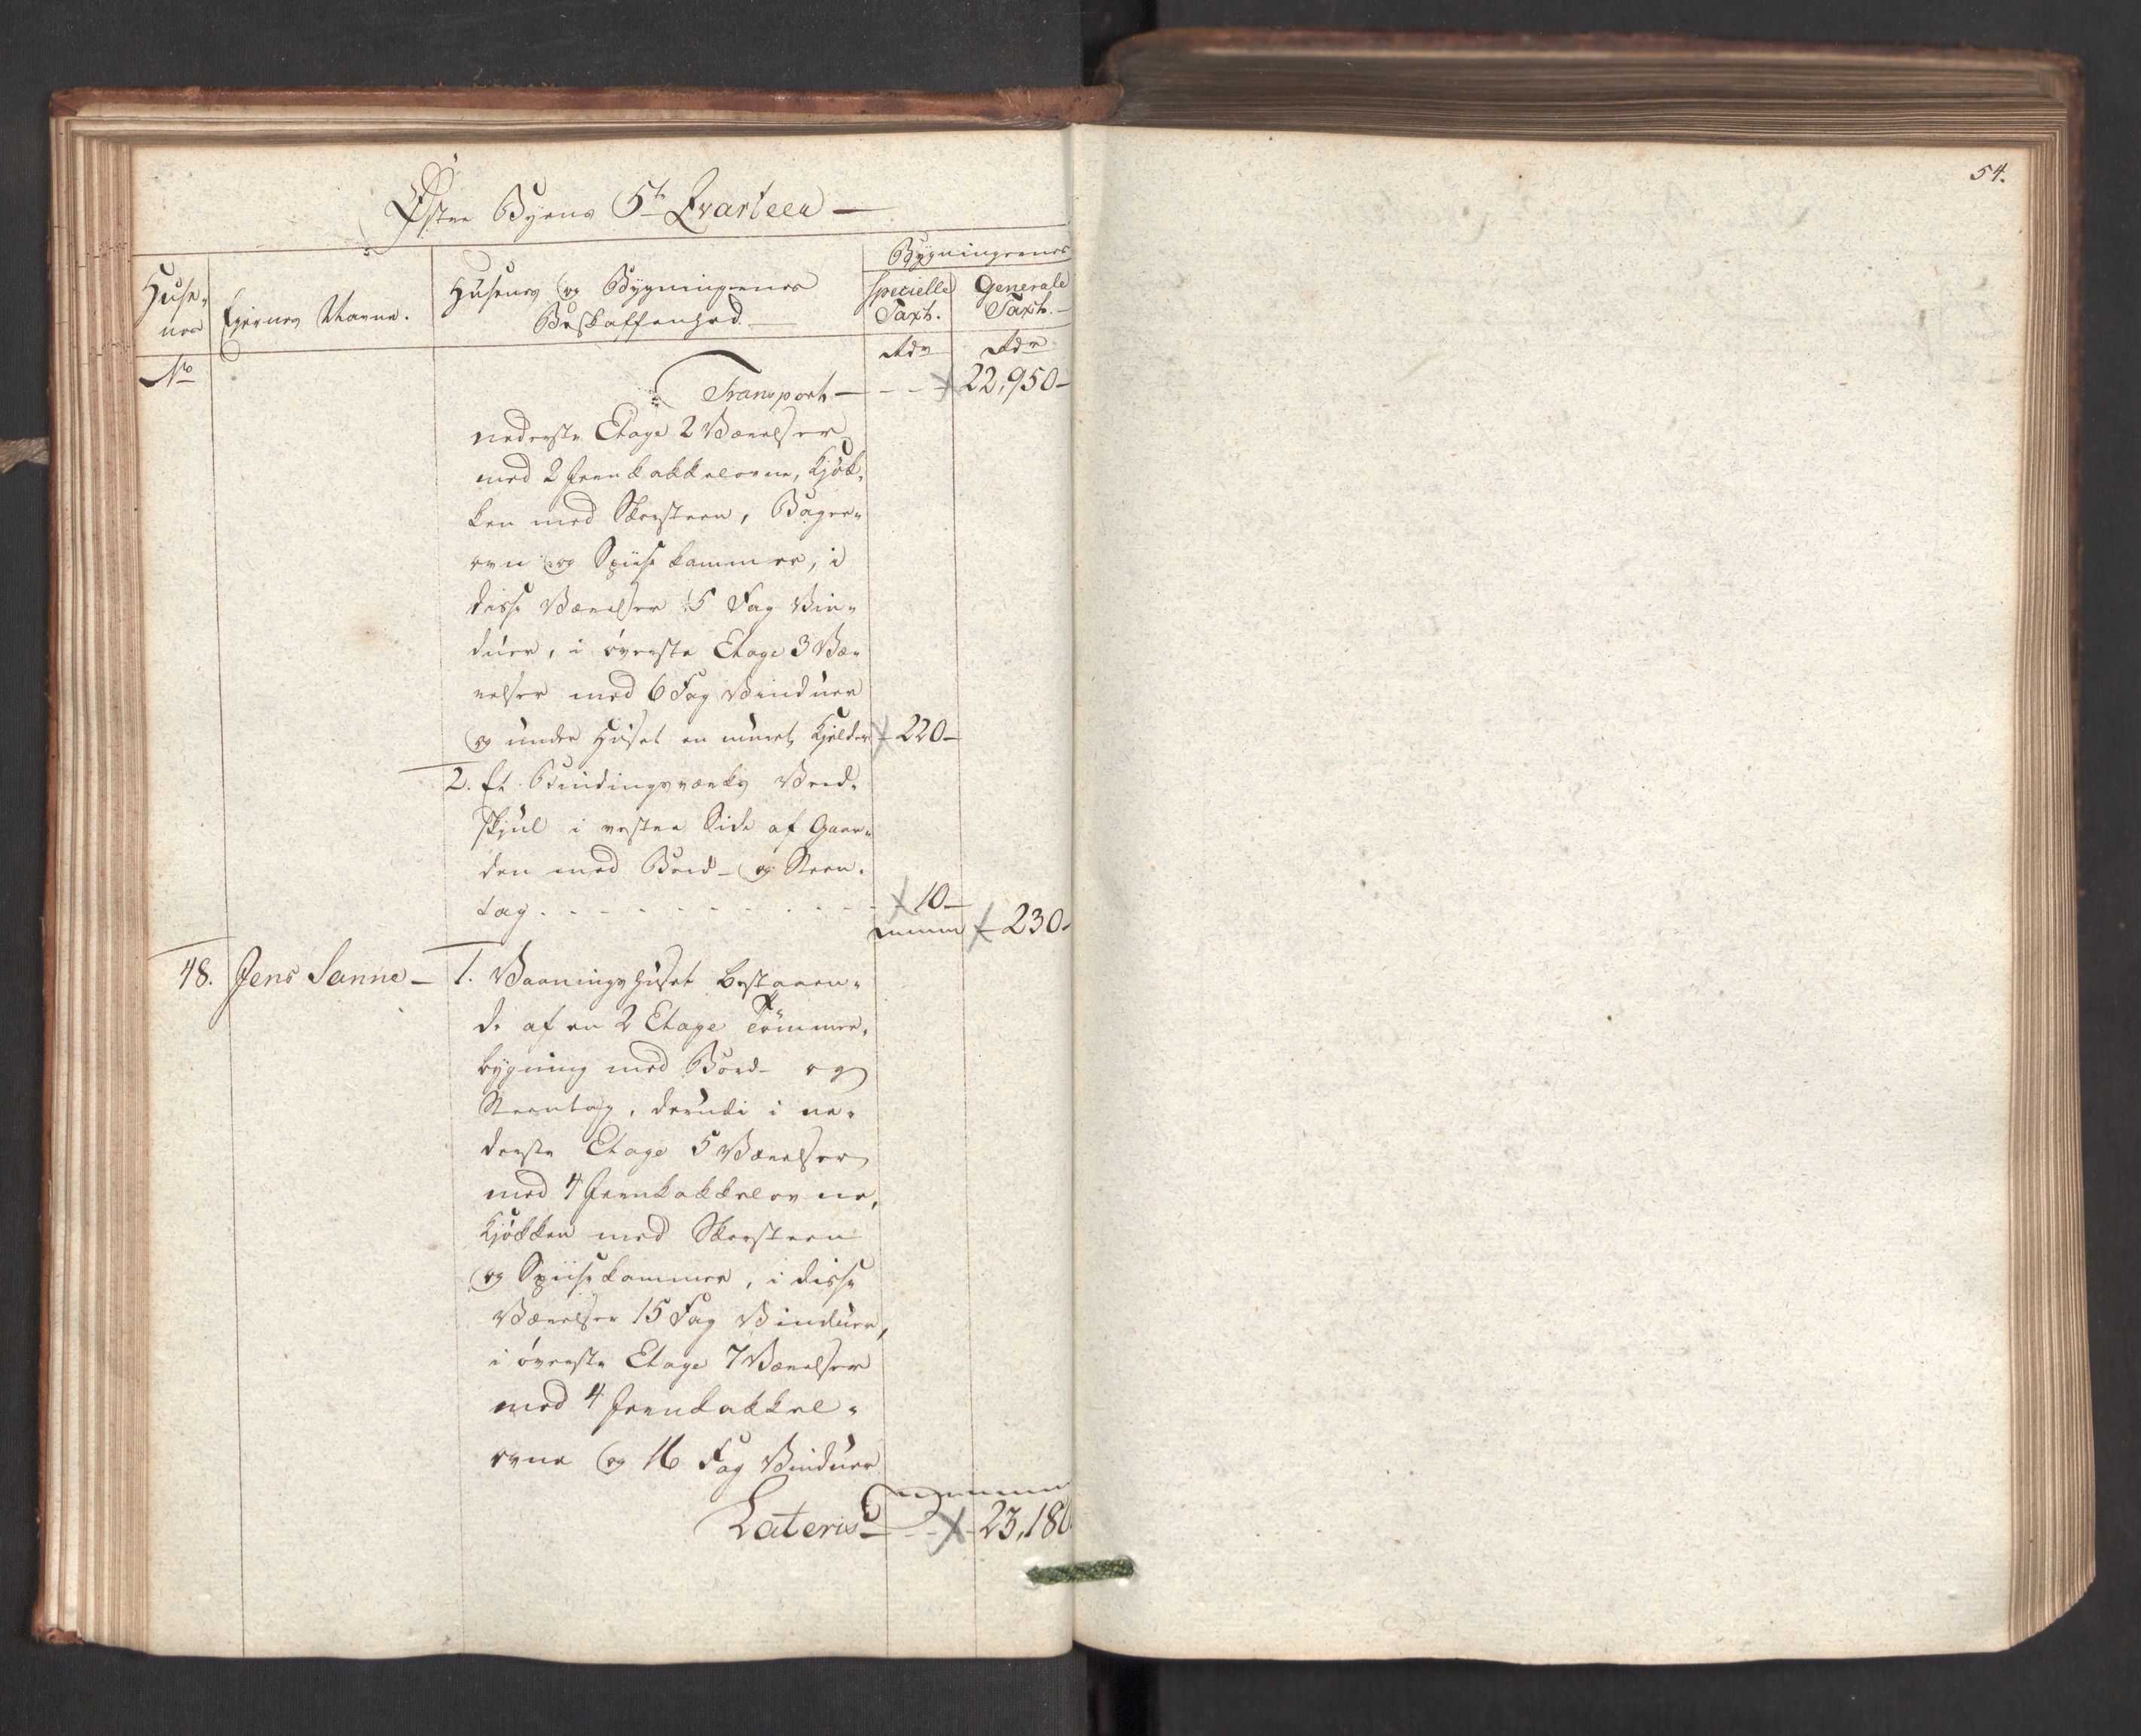 54.
Østre Byens 5te Qvarteer —
Huse-
nes
Eiernes Navne.
Husenes og Bygningernes
Beskaffenhed —
Bygningernes
Specielle
Taxt.
Generale
Taxt. —
No
Rdr
Rdr
Transport — 22,950 —
nederste Etage 2 Værelser
med 2 Jernkakkelovne, Kjøk-
ken med Skorsteen, Bager-
ovn og Spiisekammer, i
disse Værelser 5 Fag Vin-
duer, i øverste Etage 3 Væ-
relser med 6 Fag Vinduer
og under Huset en muret Kjelder 220 —
2. Et Bindingsværks Ved-
skjul i vestre Side af Gaar-
den med Bord- og Steen-
tag 10 —
230 —
48. Jens Sanne — 1. Vaaningshuset bestaaen-
de af en 2 Etage Tømmer-
bygning med Bord- og
Steentag, derudi i ne-
derste Etage 5 Værelser
med 4 Jernkakkelovne,
Kjøkken med Skorsteen
og Spiisekammer, i disse
Værelser 15 Fag Vinduer,
i øverste Etage 7 Værelser
med 4 Jernkakkel-
ovne og 16 Fag Vinduer
Lateris — 23,180